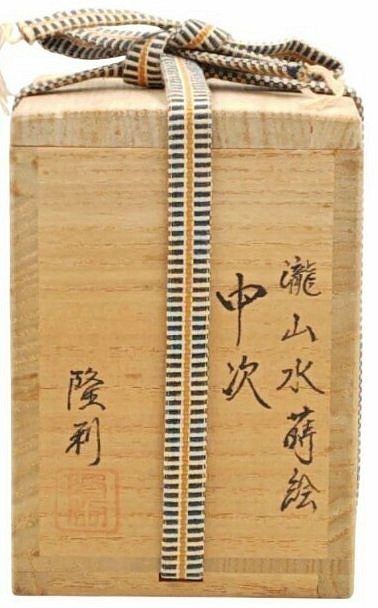 瀧山水蒔絵
中次
隆利